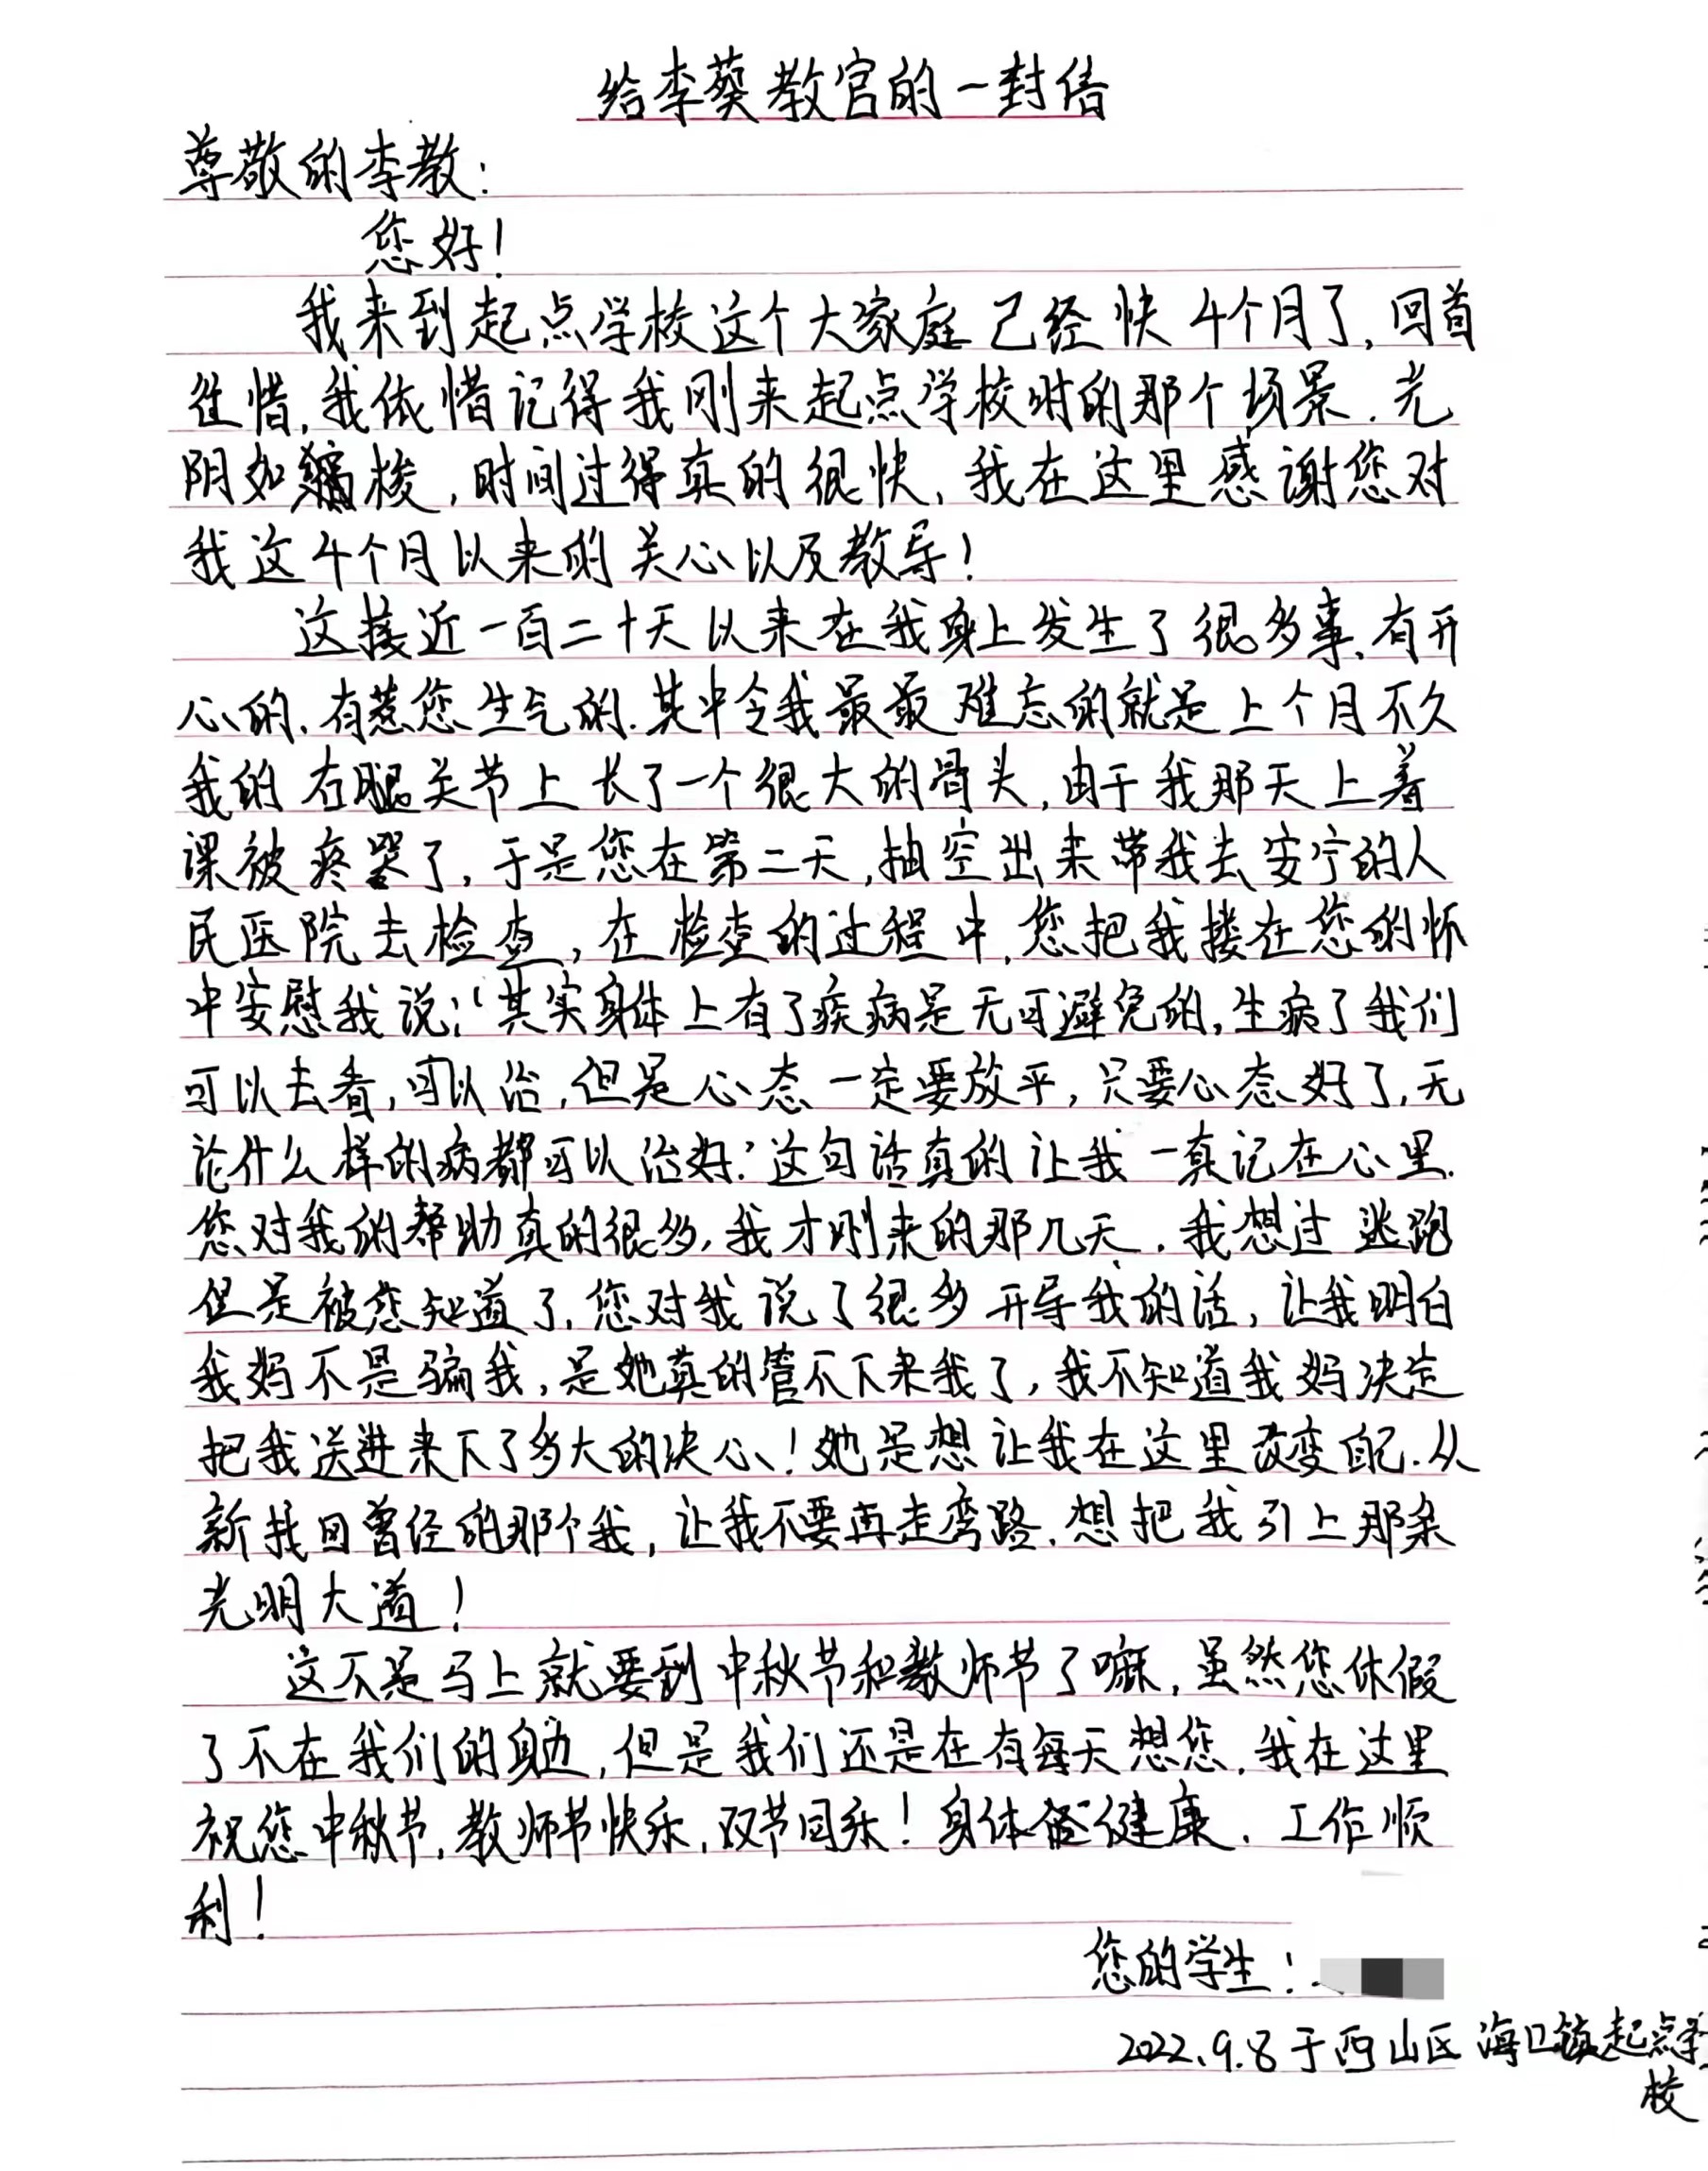 给李葵教官的一封信
尊敬的李教:
您好!
我来到起点学校这个大家庭已经快4个月了,回首
往惜,我依惜记得我刚来起点学校时的那个场景.光
阴如梭,时间过得真的很快,我在这里感谢您对
我这4个月以来的关心以及教导!
这接近一百二十天以来在我身上发生了很多事,有开
心的,有惹您生气的.其中令我最最难忘的就是上个月不久
我的右腿关节上长了一个很大的骨头,由于我那天上着
课被疼哭了,于是您在第二天,抽空出来带我去安宁的人
民医院去检查,在检查的过程中,您把我搂在您的怀
中安慰我说:“其实身体上有了疾病是无可避免的,生病了我们
可以去看,可以治,但是心态一定要放平,只要心态好了,无
论什么样的病都可以治好.”这句话真的让我一真记在心里.
您对我的帮助真的很多,我才刚来的那几天,我想过逃跑
但是被您知道了,您对我说了很多开导我的话,让我明白
我妈不是骗我,是她真的管不下来我了,我不知道我妈决定
把我送进来下了多大的决心!她是想让我在这里改变自己.从
新找回曾经的那个我,让我不要再走弯路.想把我引上那条
光明大道!
这不是马上就要到中秋节和教师节了嘛,虽然您休假
了不在我们的身边,但是我们还是在有每天想您,我在这里
祝您中秋节,教师节快乐,双节同乐!身体健康,工作顺
利!
您的学生:
2022.9.8于西山区海口镇起点学
校